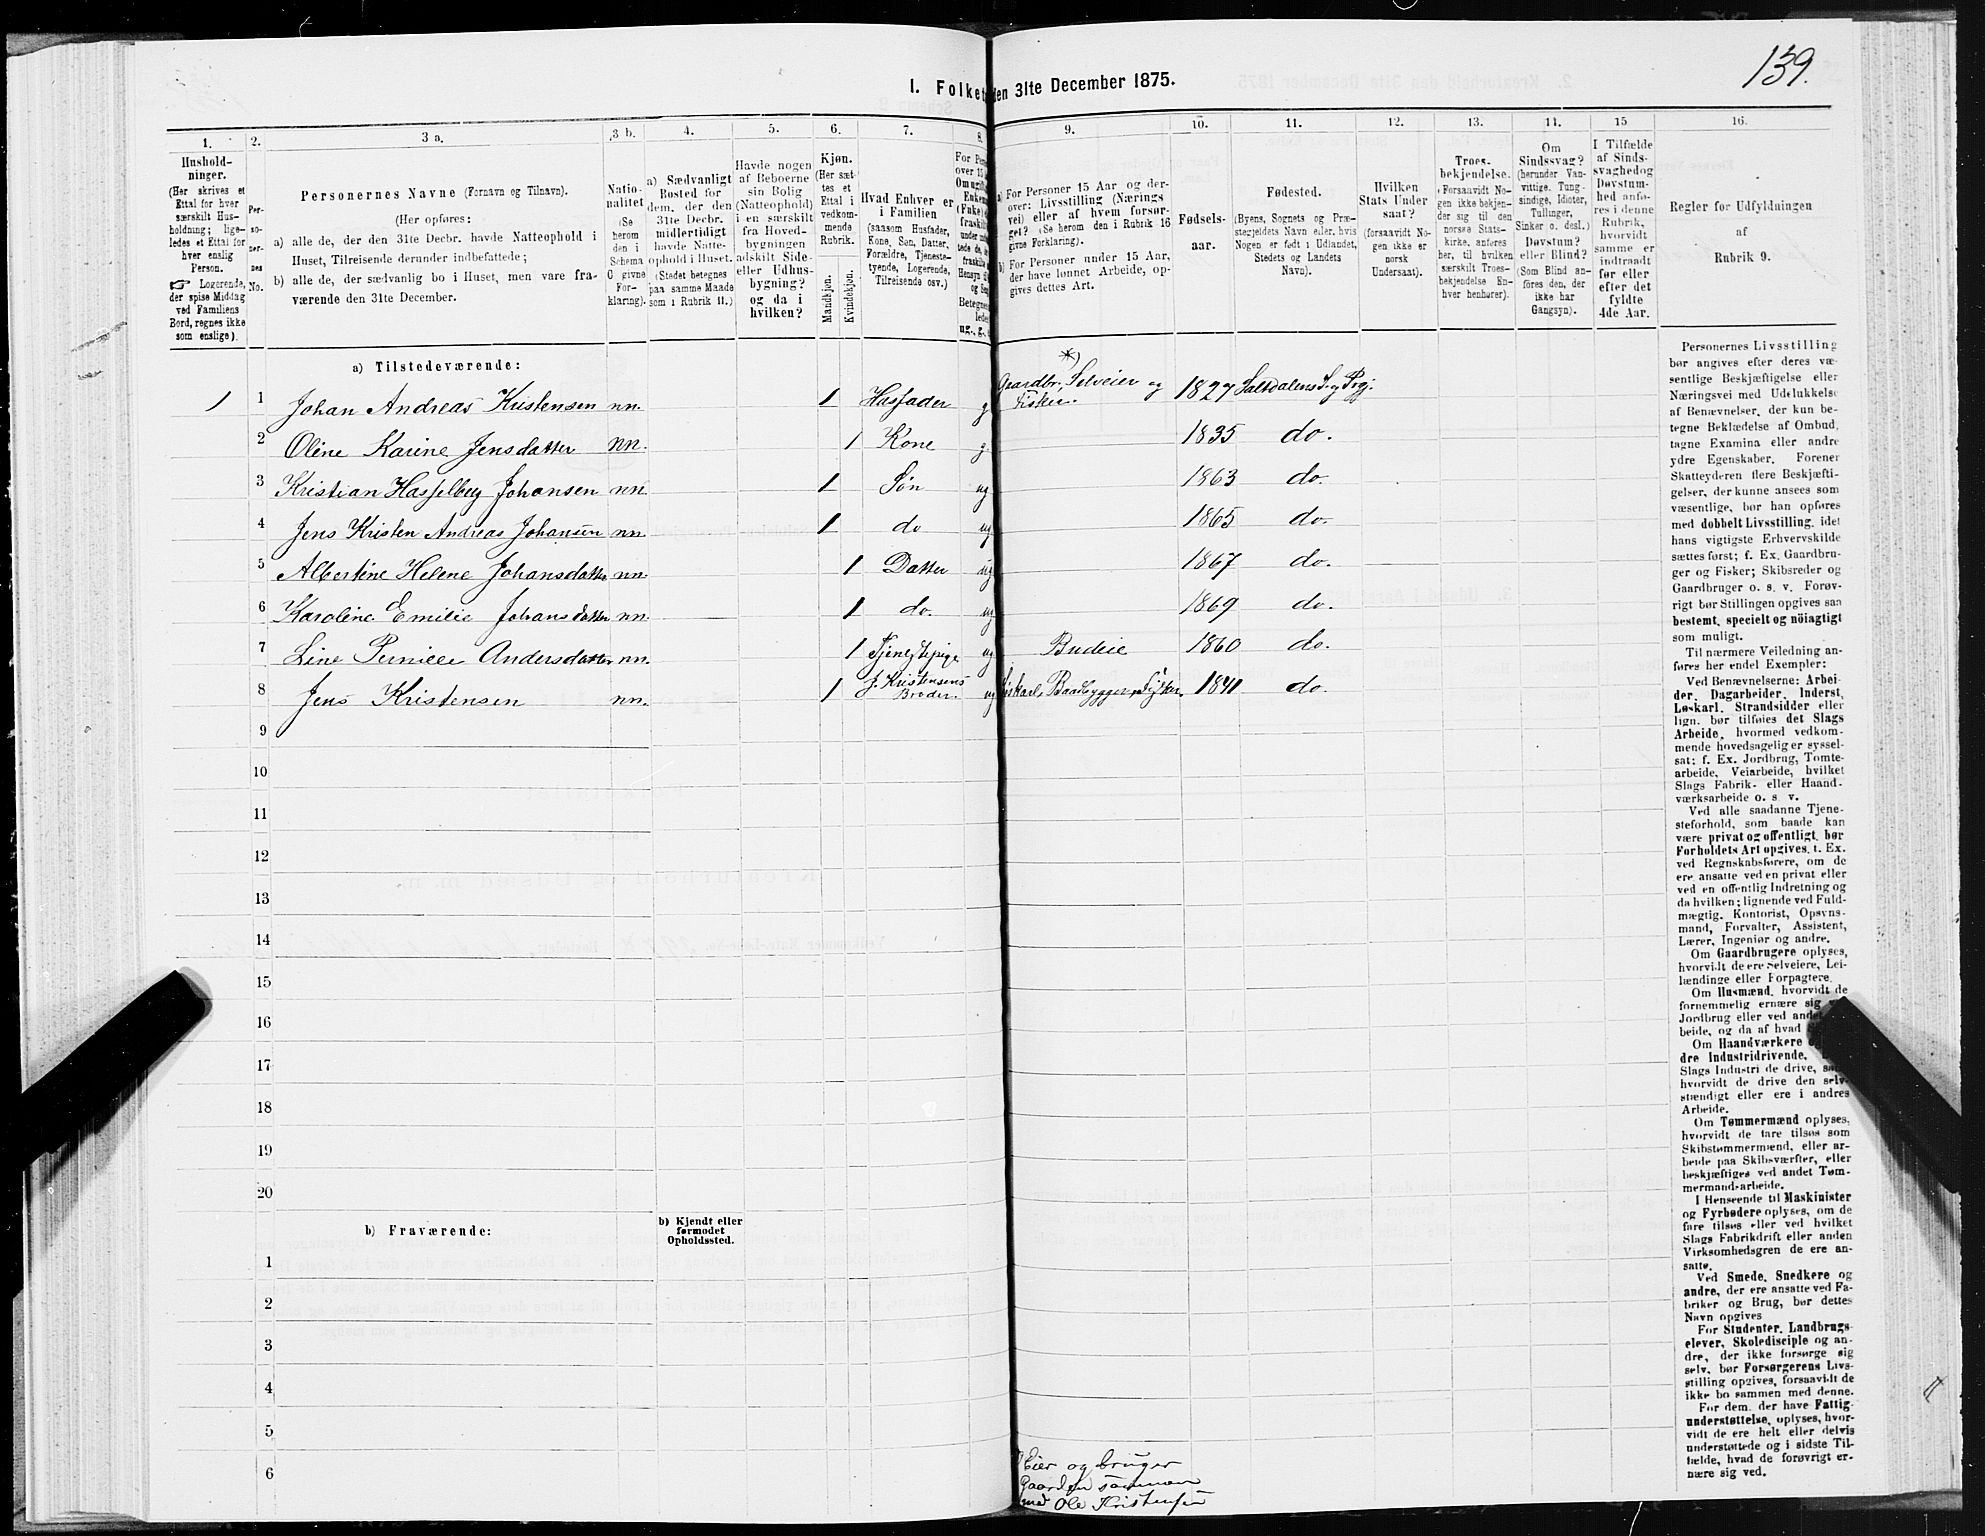 139.
I. Folket
den 31te December 1875.
1.
Hushold-
ninger.
(Her skrives et
Ettal for hver
særskilt Hus-
holdning; lige-
ledes et Ettal for
hver enslig
Person.
☞ Logerende,
der spise Middag
ved Familiens
Bord, regnes ikke
som enslige).
2.
Per-
so-
ner-
nes
No.
3 a.
Personernes Navne (Fornavn og Tilnavn).
(Her opføres:
a) alle de, der den 31te Decbr. havde Natteophold i
Huset, Tilreisende derunder indbefattede;
b) alle de, der sædvanlig bo i Huset, men vare fra-
værende den 31te December.
3 b.
Natio-
nalitet
(Se
herom
den i
Schema
C givne
For-
klaring).
4.
a) Sædvanligt
Bosted for
dem, der den
31te Decbr.
midlertidigt
havde Natte-
ophold i Huset.
(Stedet betegnes
paa samme Maade
som i Rubrik 11.)
5.
Havde nogen
af Beboerne
sin Bolig
(Natteophold)
i en særskilt
fra Hoved-
bygningen
adskilt Side-
eller Udhus-
bygning?
og da i
hvilken?
6.
Kjøn.
(Her sæt-
tes et
Ettal i
vedkom-
mende
Rubrik.
Mandkjøn.
Kvindekjøn.
7.
Hvad Enhver er
i Familien
(saasom Husfader,
Kone, Søn, Datter,
Forældre, Tjeneste-
tyende, Logerende,
Tilreisende osv.)
8.
9.
a) For Personer 15 Aar og der-
over: Livsstilling (Nærings
vei) eller af hvem forsør-
get? (Se herom den i Rubrik 16
givne Forklaring).
b) For Personer under 15 Aar,
der have lønnet Arbeide, op-
gives dettes Art.
10.
Fødsels-
aar.
11.
Fødested.
(Byens, Sognets og Præ-
stegjeldets Navn eller, hvis
Nogen er født i Udlandet,
Stedets og Landets
Navn).
12.
Hvilken
Stats Under
saat?
(forsaavidt No-
gen ikke er
norsk
Undersaat).
13.
Troes-
bekjendelse.
(Forsaavidt No-
gen ikke bekjen-
der sig til den
norske Stats-
kirke, anføres
her, til hvilken
særskilt Troes-
bekjendelse En-
hver henhører).
14.
Om
Sindssvag?
(herunder Van-
vittige, Tung-
sindige, Idioter,
Tullinger,
Sinker o. desl.)
Døvstum?
eller Blind?
(Som Blind an-
føres den, der
ikke har
Gangsyn).
15
I Tilfælde
af Sinds-
svaghed og
Døvstum-
hed anfø-
res i denne
Rubrik,
hvorvidt
samme er
indtraadt
før eller
efter det
fyldte
4de Aar.
16.
Regler for Udfyldningen
af
Rubrik 9.
a) Tilstedeværende:
1 1 Johan Andreas Kristensen nn. 1 Husfader g Gaardbr., Selveier og Fisker. *) 1827 Saltdalens S. og Prgj.
2 Oline Karine Jensdatter nn. 1 Kone g 1835 do.
3 Kristian Hasselberg Johansen nn. 1 Søn ug 1863 do.
4 Jens Kristen Andreas Johansen nn. 1 do ug 1865 do.
5 Albertine Helene Johansdatter nn. 1 Datter ug 1867 do.
6 Karoline Emilie Johansdatter nn. 1 do. ug 1869 do.
7 Line Pernille Andersdatter nn. 1 Tjenestepige ug Budeie 1860 do.
8 Jens Kristensen nn. 1 J. Kristensens Broder. ug Baadbygger, Fisker 1841 do.
9
10
11
12
13
14
15
16
17
18
19
20
b) Fraværende:
b) Kjendt eller
formodet
Opholdssted.
1
2
3
4
5
6
Eier og bruger
Gaarden sammen
med Ole Kristensen
Personernes Livsstilling
bør angives efter deres væ-
sentlige Beskjæftigelse eller
Næringsvei med Udelukkelse
af Benævnelser, der kun be-
tegne Beklædelse af Ombud,
tagne Examina eller andre
ydre Egenskaber. Forener
Skatteyderen flere Beskjæfti-
gelser, der kunne ansees som
væsentlige, bør han opføres
med dobbelt Livsstilling, idet
hans vigtigste Erhvervskilde
sættes først; f. Ex. Gaardbru-
ger og Fisker; Skibsreder og
Gaardbruger o. s. v. Forøv-
rigt bør Stillingen opgives saa
bestemt, specielt og nöiagtigt
som muligt.
Til nærmere Veiledning an-
føres her endel Exempler:
Ved Benævnelserne: Arbei-
der, Dagarbeider, Inderst,
Løskarl, Strandsidder eller
lign. bør tilføies det Slags
Arbeide, hvormed vedkom-
mende hovedsagelig er syssel-
sat; f. Ex. Jordbrug, Tomte-
arbeide, Veiarbeide, hvilket
Slags Fabrik- eller Haand-
værksarbeide o. s. v.
Ved alle saadanne Tjene-
steforhold, som baade kan
være privat og offentligt, bør
Forholdets Art opgives, f. Ex.
ved Regnskabsførere, om de
ere ansatte ved en privat eller
ved en offentlig Indretning og
da hvilken; lignende ved Fuld-
mægtig, Kontorist, Opsyns-
mand, Forvalter, Assistent,
Lærer, Ingeniør og andre.
Om Gaardbrugere oplyses,
hvorvidt de ere Selveiere, Lei-
lændinge eller Forpagtere.
Om Husmænd, hvorvidt de
fornemmelig ernære sig
Jordbrug eller ved
beide, og da af hvad
Om Haandværkere
dre Industridrivende,
Slags Industri de drive,
hvorvidt de drive den selv-
stændigt eller ere i andres
Arbeide.
Om Tømmermænd oplyses,
hvorvidt de fare tilsøs som
Skibstømmermænd, eller ar-
beide paa Skibsværfter, eller
beskjæftiges ved andet Tøm-
mermandsarbeide.
I Henseende til Maskinister
og Fyrbødere oplyses, om de
fare tilsøs eller ved hvilket
Slags Fabrikdrift eller anden
Virksomhedsgren de ere an-
satte.
Ved Smede, Snedkere og
andre, der ere ansatte ved Fa-
briker og Brug, bør dettes
Navn opgives
For Studenter, Landbrugs-
elever, Skoledisciple og an-
dre, der ikke forsørge sig
selv, bør Forsørgerens Livs-
stilling opgives, forsaavidt de
ikke bo sammen med denne.
For dem, der have Fattig-
understøttelse, oplyses, hvor-
vidt de ere helt eller delvis
understøttede og i sidste Til-
fælde, hvad de forøvrigt er-
nære sig ved.